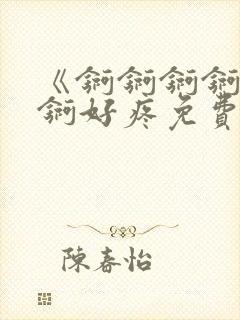 《锕锕锕锕
锕好疼免費
陳春怡